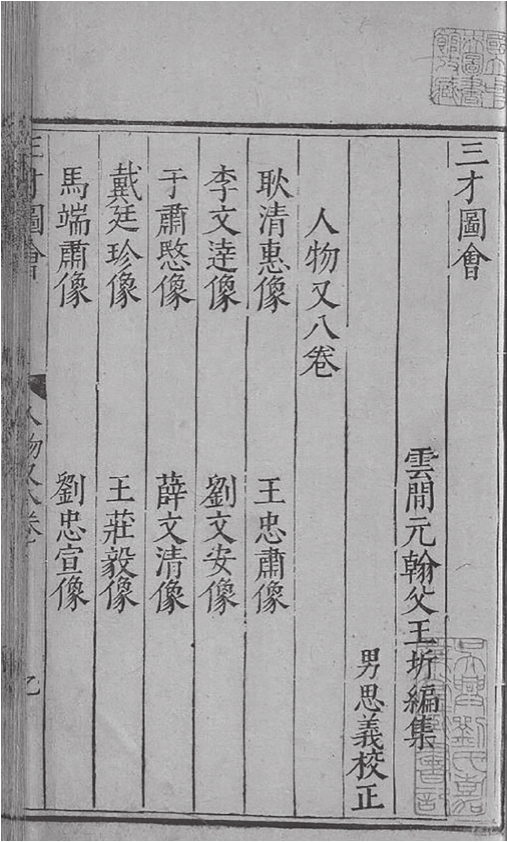 國立中
央圖書
館收藏
三才圖會
雲閒元翰父王圻編集
男思義校正
人物又八卷
耿清惠像 王忠肅像
李文達像 劉文安像
于肅愍像 薛文清像
戴廷珍像 王莊毅像
馬端肅像 劉忠宣像
三才圖會 人物又八卷
吳興劉氏嘉